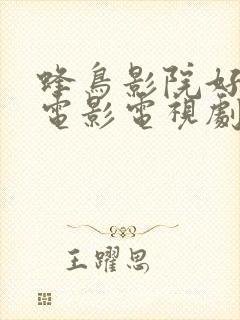 蜂鳥影院好
電影電視劇
王躍思